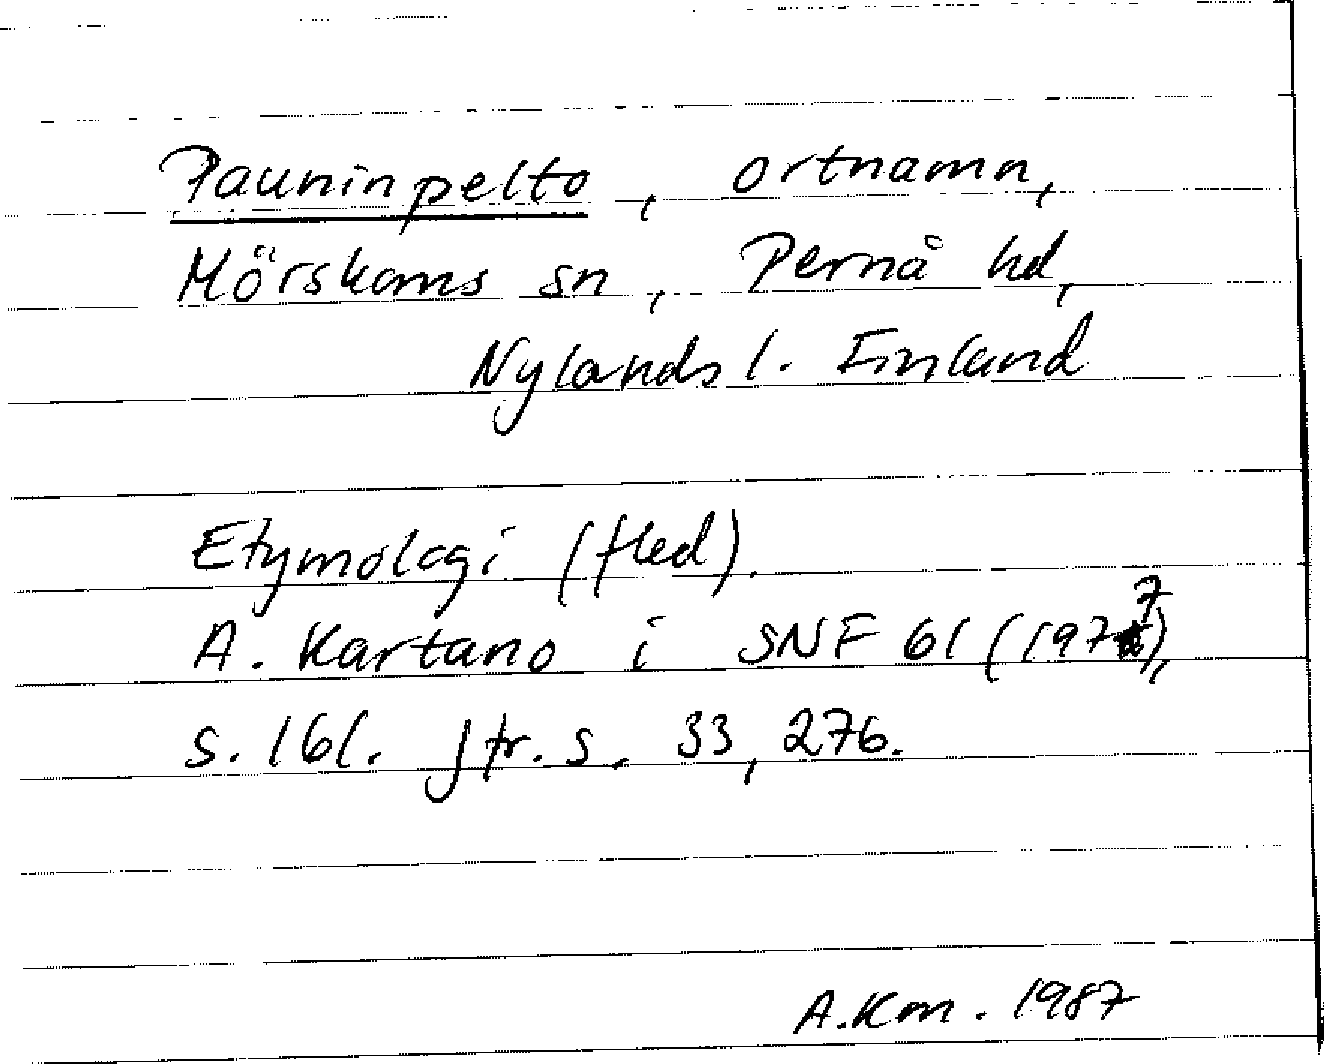 Pauninpelto, ortnamn,
Mörskoms sn, Pernå hd,
Nylands l. Finland
Etymologi (fled).
A. Kartano i SNF 61 (1977),
s. 161. Jfr. s. 33, 276.
A.Km. 1987